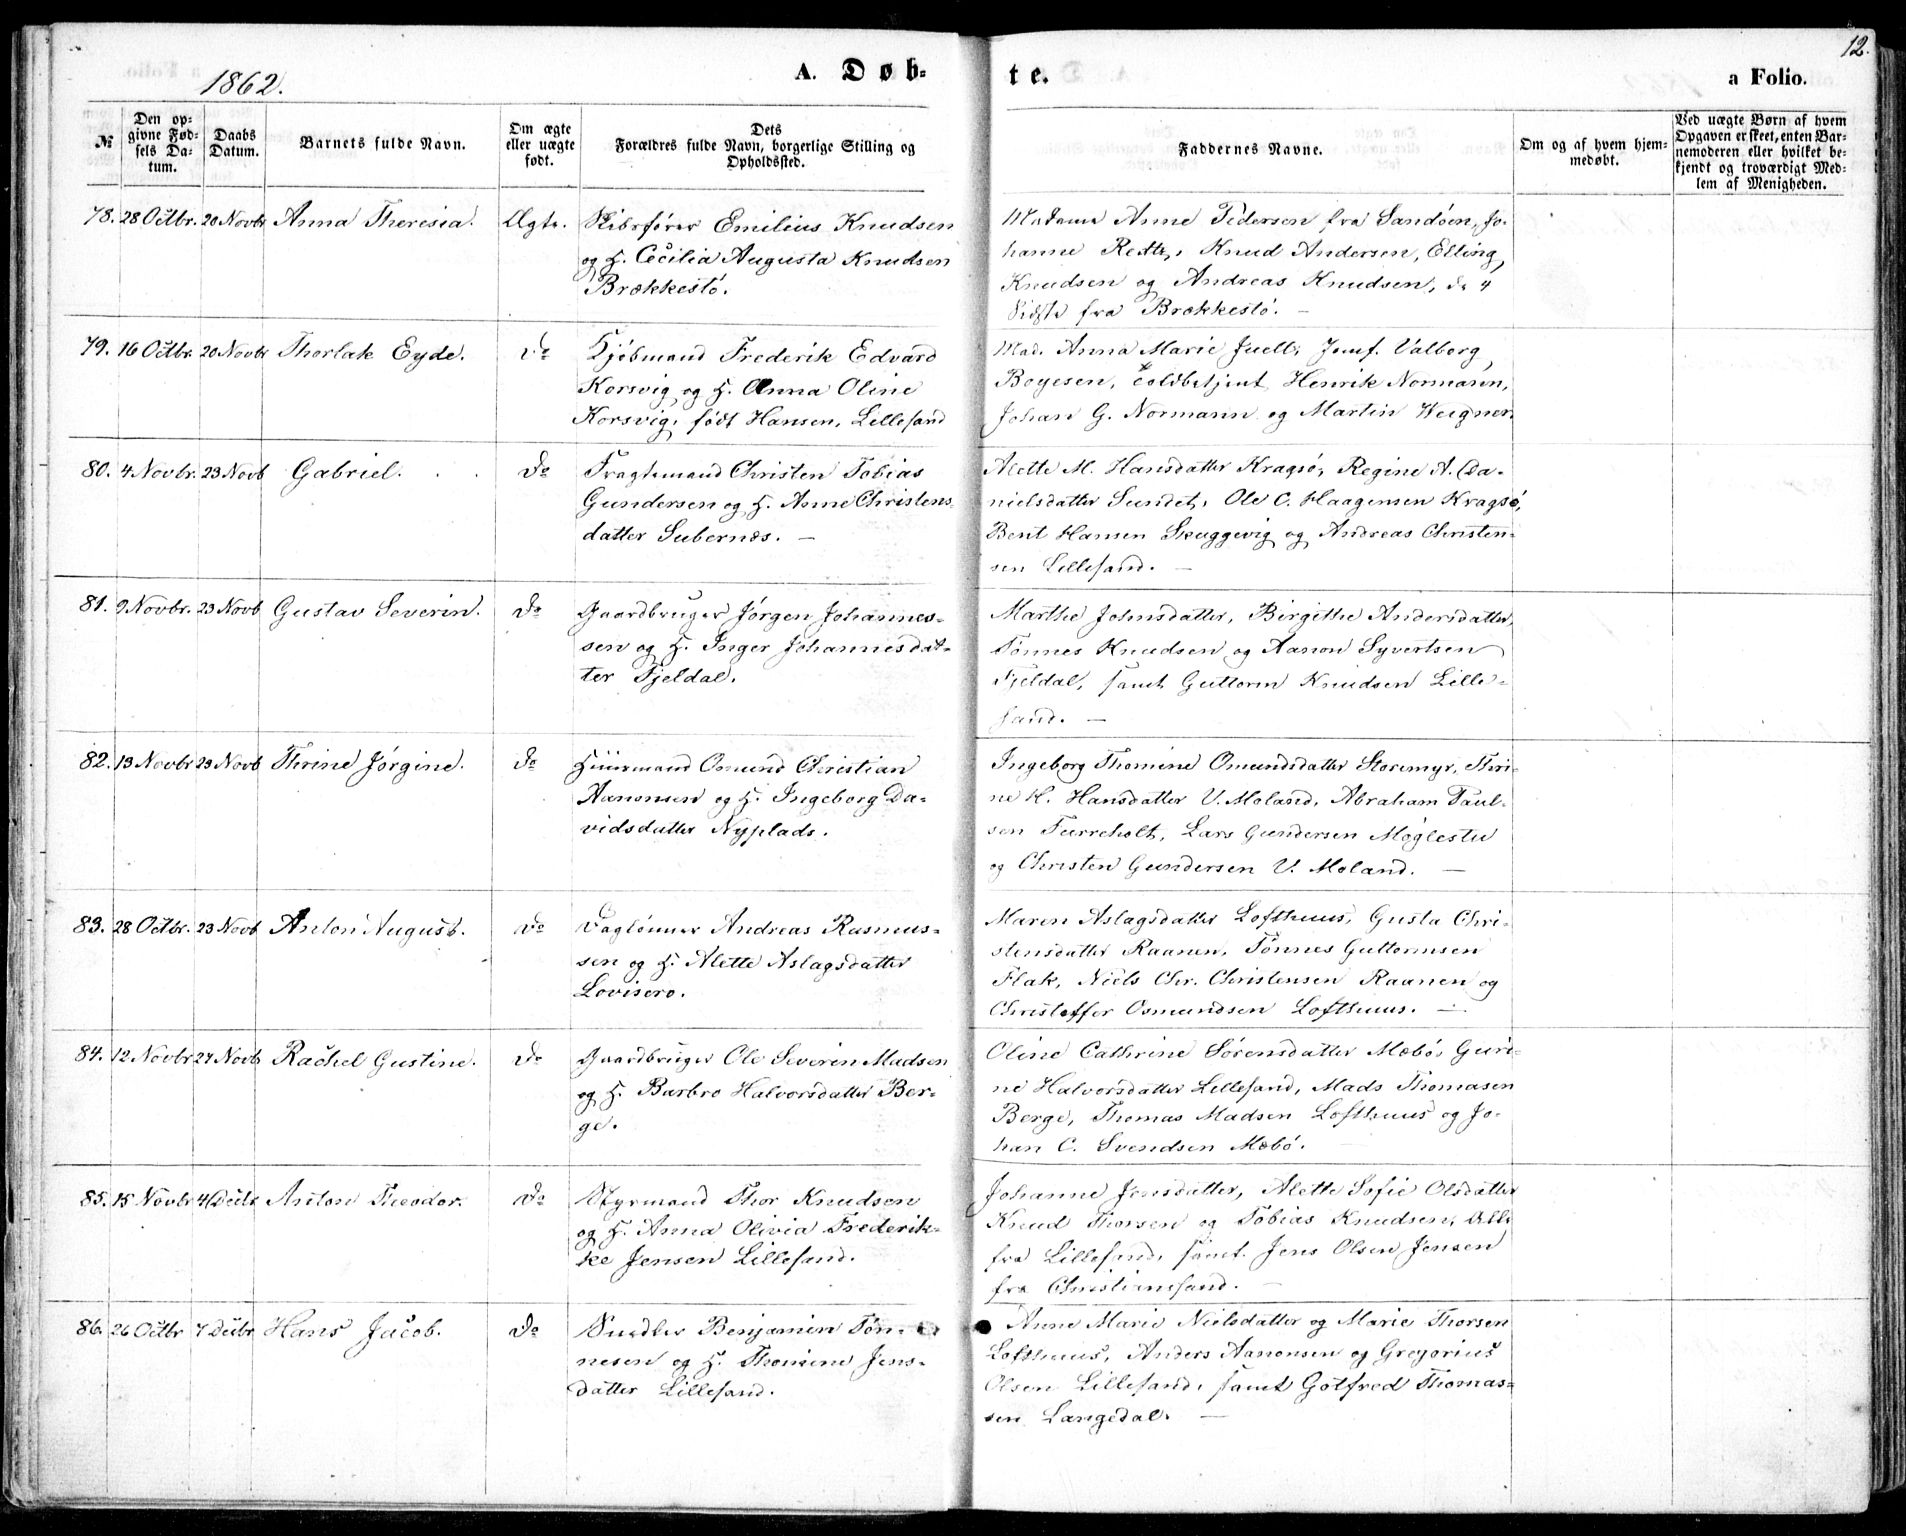 12.
1862.
A. Døb-
te.
a Folio.
№
Den op-
givne Fød-
sels Da-
tum.
Daabs
Datum.
Barnets fulde Navn.
Om ægte
eller uægte
født.
Dets
Forældres fulde Navn, borgerlige Stilling og
Opholdssted.
Faddernes Navne.
Om og af hvem hjem-
medøbt.
Ved uægte Børn af hvem
Opgaven er skeet, enten Bar-
nemoderen eller hvilket be-
kjendt og troværdigt Med-
lem af Menigheden.
78. 28 Octbr. 20 Novbr Anna Theresia. Ægte.
Skibsfører Emilius Knudsen
og H. Cecilia Augusta Knudsen
Brækkestø.
Madame Anne Pedersen fra Sandøen, Jo-
hanne Knud Andersen, Elling
Knudsen og Andreas Knudsen, de 4
Sidste fra Brækkestø. —
79. 16 Octbr. 20 Novbr Thorlak Eyde. Do
Kjøbmand Frederik Edvard
Korsvig og H. Anna Oline
Korsvig, født Hansen, Lillesand
Mad. Anna Marie Juell, Jomf. Valborg
Boyesen, Toldbetjent Henrik Normann,
Johan G. Normann og Martin Weigner.
80. 4 Novbr. 23 Novb Gabriel. Do
Fragtemand Christen Tobias
Gundersen og H. Anne Christens-
datter Subernæs. —
Alette M. Hansdatter Kragsø, Regine A. Da-
nielsdatter Sundet, Ole C. Haagensen Kragsø,
Bent Hansen Skaggevig og Andreas Christen-
sen Lillesand. —
81. 9 Novbr. 23 Novb Gustav Severin. Do
Gaardbruger Jørgen Johannes-
sen og H. Inger Johannesdat-
ter Fjeldal.
Marthe Johnsdatter, Birgithe Andersdatter,
Tønnes Knudsen og Aanon Syvertsen
Fjeldal, samt Guttorm Knudsen Lille-
sand. —
82. 13 Novbr 23 Novb Thrine Jørgine. Do
Huusmand Osmund Christian
Aanonsen og H. Ingeborg Da-
vidsdatter Nyplads.
Ingeborg Thomine Omundsdatter Storemyr, Thri-
ne K. Hansdatter V. Moland, Abraham Paul-
sen Turreholt, Lars Gundersen Møglestu
og Christen Gundersen V. Moland. —
83. 28 Octbr. 23 Novb Anton August. Do
Daglønner Andreas Rasmus-
sen og H. Alette Aslagsdatter
Lovisero.
Maren Aslagsdatter Lofthuus, Gusta Chri-
stensdatter Raanen, Tønnes Guttormsen
Flak, Niels Chr. Christensen Raanen og
Christoffer Osmundsen Lofthuus. —
84. 12 Novbr 27 Novb Rachel Gustine. Do
Gaardbruger Ole Severin Madsen
og H. Barbro Halvorsdatter Ber-
ge.
Oline Cathrine Sørensdatter Mæbø, Guri-
ne Halvorsdatter Lillesand, Mads Thomasen
Berge, Thomas Madsen Lofthuus og Jo-
han C. Svendsen Mæbø.
85. 15 Novbr 4 Decbr Anton Theodor. Do
Styrmand Thor Knudsen
og H. Anna Olivia Frederik-
ke Jensen Lillesand.
Johanne Jensdatter, Alette Sofie Olsdatter
Knud Thorsen og Tobias Knudsen, Alle
fra Lillesand, samt Jens Olsen Jensen
fra Christiansand. —
86. 26 Octbr 7 Decbr Hans Jacob. Do
Snedker Benjamin Tøn-
nesen og H. Thomine Jens-
datter Lillesand.
Anne Marie Nielsdatter og Marie Thorsen
Lofthuus, Anders Aanonsen og Gregorius
Olsen Lillesand, samt Gotfred Thomas-
sen Langedal. —